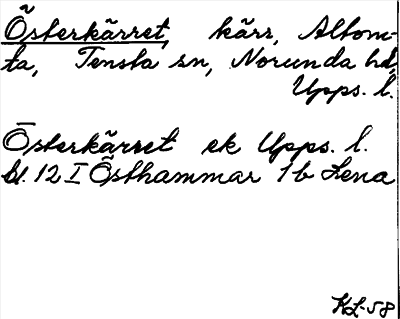 Österkärret, kärr, Altom-
ta, Tensta sn, Norunda hd,
Upps. l.
Österkärret ek Upps. l.
bl. 12 I Östhammar 1b Lena
KL-58